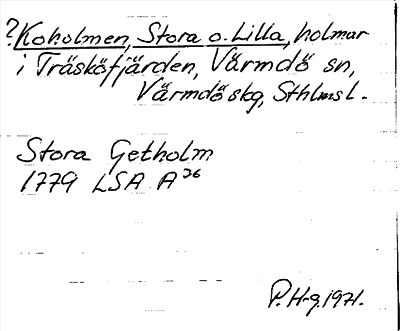 ?Koholmen, Stora o. Lilla, holmar
i Träsköfjärden, Värmdö sn,
Värmdö skg, Sthlms l.
Stora Getholm
1779 LSA A36
P. H-g. 1971.